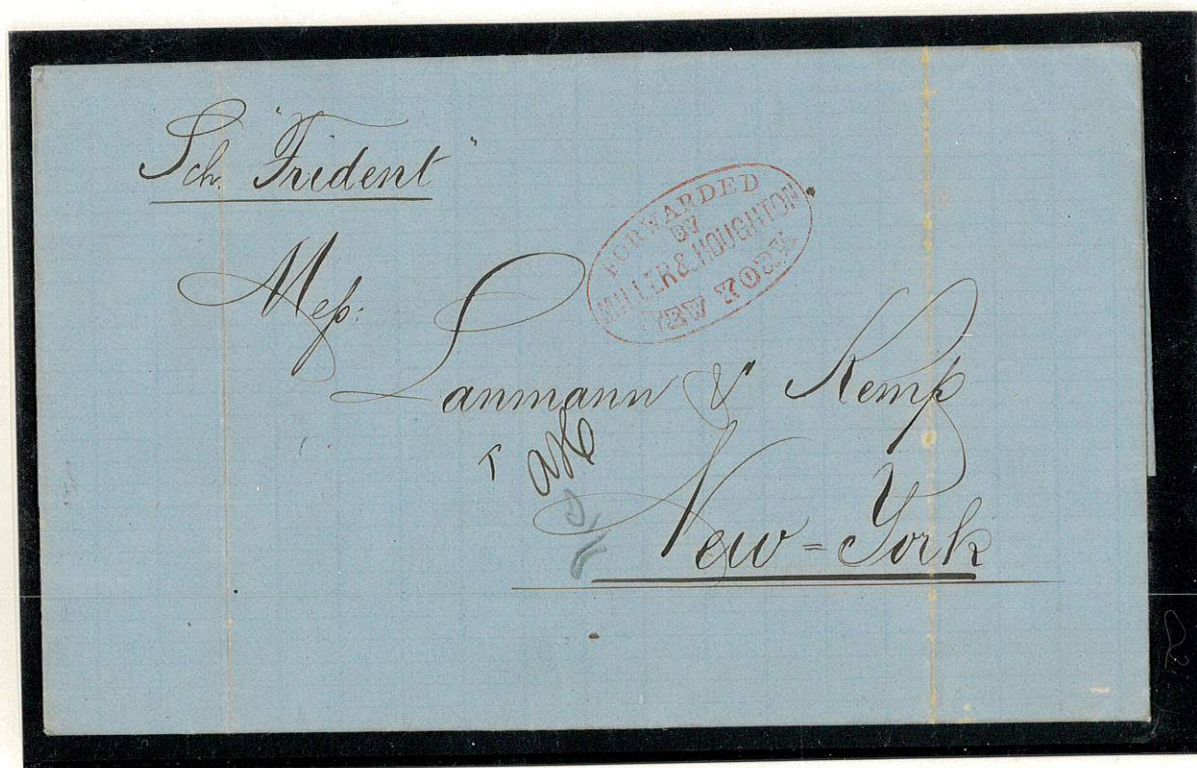 Sch. "Trident"
FORWARDED
BY
MILLER & HOUGHTON
NEW YORK
Mess:
Lanmann & Kemp
New=York